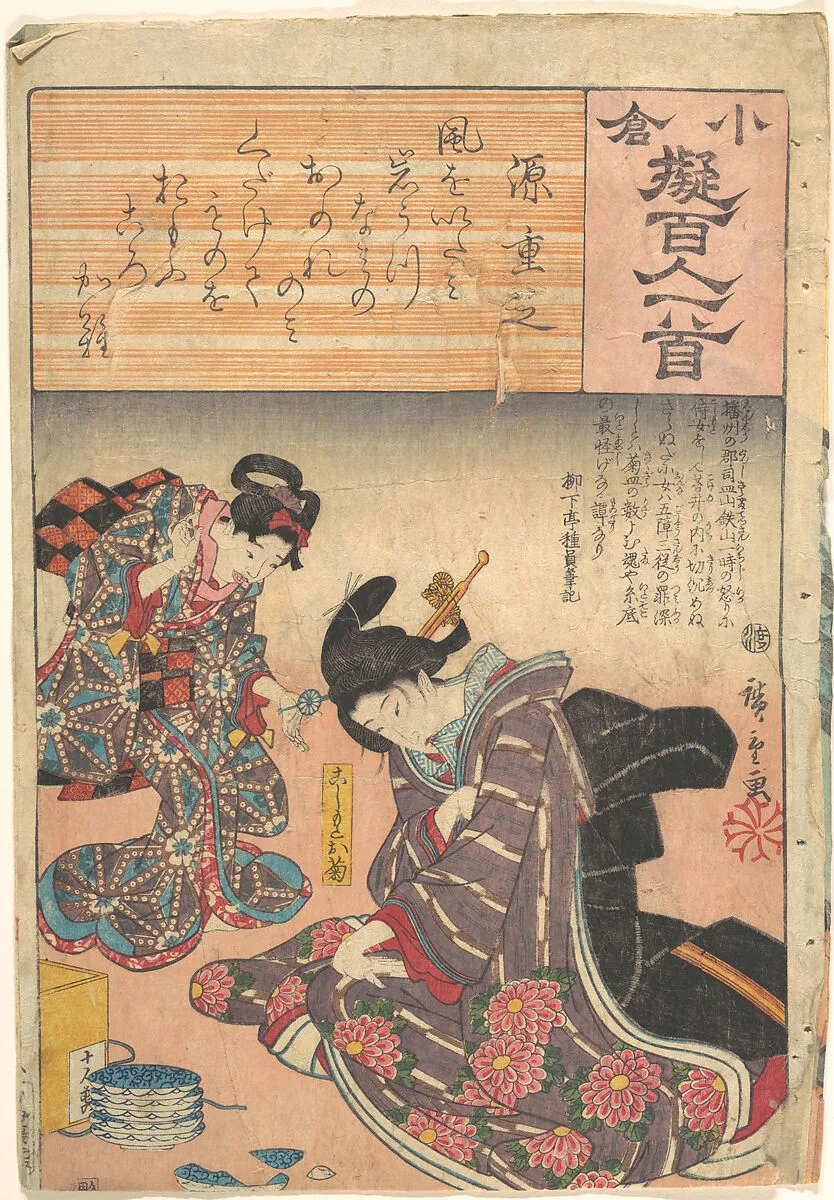 小倉
擬百人一首
源重之
風をいたミ
岩うつ
なミの
おのれ
のミ
くだけて
ものを
おもふ
ころ
かな
播州の郡司皿山鉄山一時の怒りに
侍女を
井の内に切沈めぬ
さらぬだに女ハ五障三従の罪深
菊皿の数よむ魂や糸底
の最怪げなる譚なり
柳下亭種員筆記
渡
廣重画
こしもとお菊
十人前